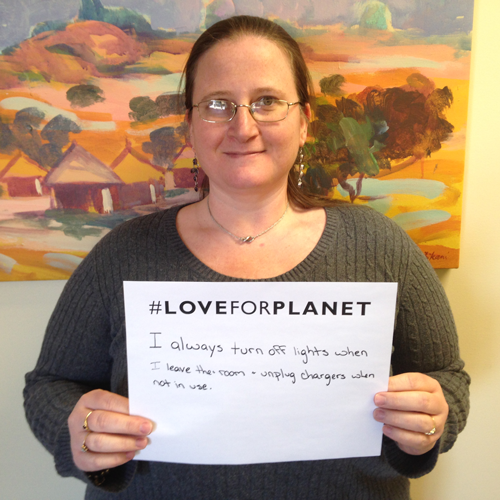 #LOVEFORPLANET
I always turn off lights when
I leave the room - unplug chargers when
not in use.